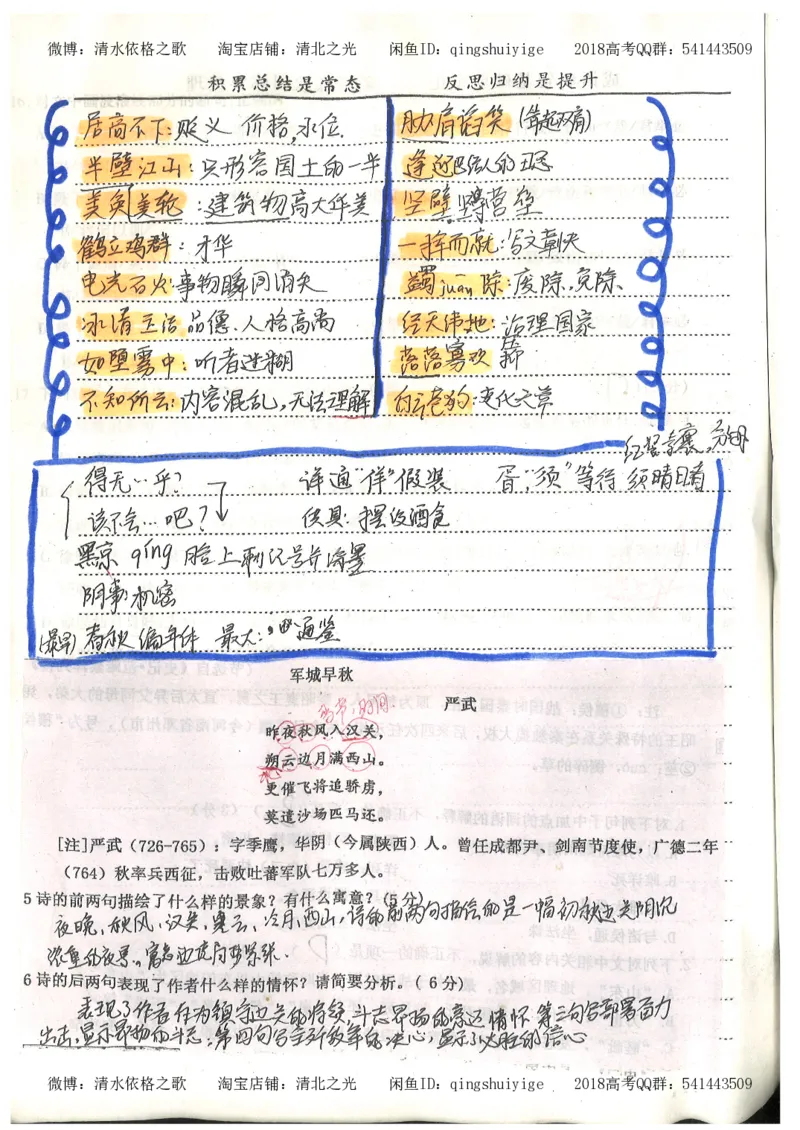 微博：清水依格之歌 淘宝店铺：清北之光 闲鱼ID：qingshuiyige 2018高考QQ群：541443509
积累总结是常态 反思归纳是提升
居高不下：贬义 价格,水位.
半壁江山：只形容国土的一半
美奂美轮：建筑物高大华美
鹤立鸡群：才华
电光石火：事物瞬间消失
冰清玉洁 品德、人格高尚
如堕雾中：听者迷糊
不知所云：内容混乱,无法理解
胁肩谄笑（耸起双肩）
逢迎巴结人的丑态
坚壁
一挥而就：写文章快
蠲juān除：废除,免除、
经天纬地：治理国家
落落寡欢
白云苍狗：变化无常
得无…乎？ 详通“佯”假装 胥，“须”等待 须晴日
该不会…吧？ 供具：摆设酒食
黥 qíng 脸上刺记号并涂墨
阴事 机密
（最早）春秋 编年体 最大： 通鉴
军城早秋
严武
昨夜秋风入汉关，
朔云边月满西山。
更催飞将追骄虏，
莫遣沙场匹马还。
[注]严武（726-765）：字季鹰，华阴（今属陕西）人。曾任成都尹、剑南节度使，广德二年
（764）秋率兵西征，击败吐蕃军队七万多人。
5 诗的前两句描绘了什么样的景象？有什么寓意？（5分）
夜晚,秋风,汉关,寒云、冷月,西山,诗的前两句描绘的是一幅初秋边关阴沉
浓重的夜景。寓意边境局势紧张.
6 诗的后两句表现了作者什么样的情怀？请简要分析。（6分）
表现了作者作为镇守边关的将领,斗志昂扬的豪迈情怀 第三句写部署奋力
出击,显示昂扬的斗志；第四句写全歼敌军的决心,显示了必胜的信心
微博：清水依格之歌 淘宝店铺：清北之光 闲鱼ID：qingshuiyige 2018高考QQ群：541443509